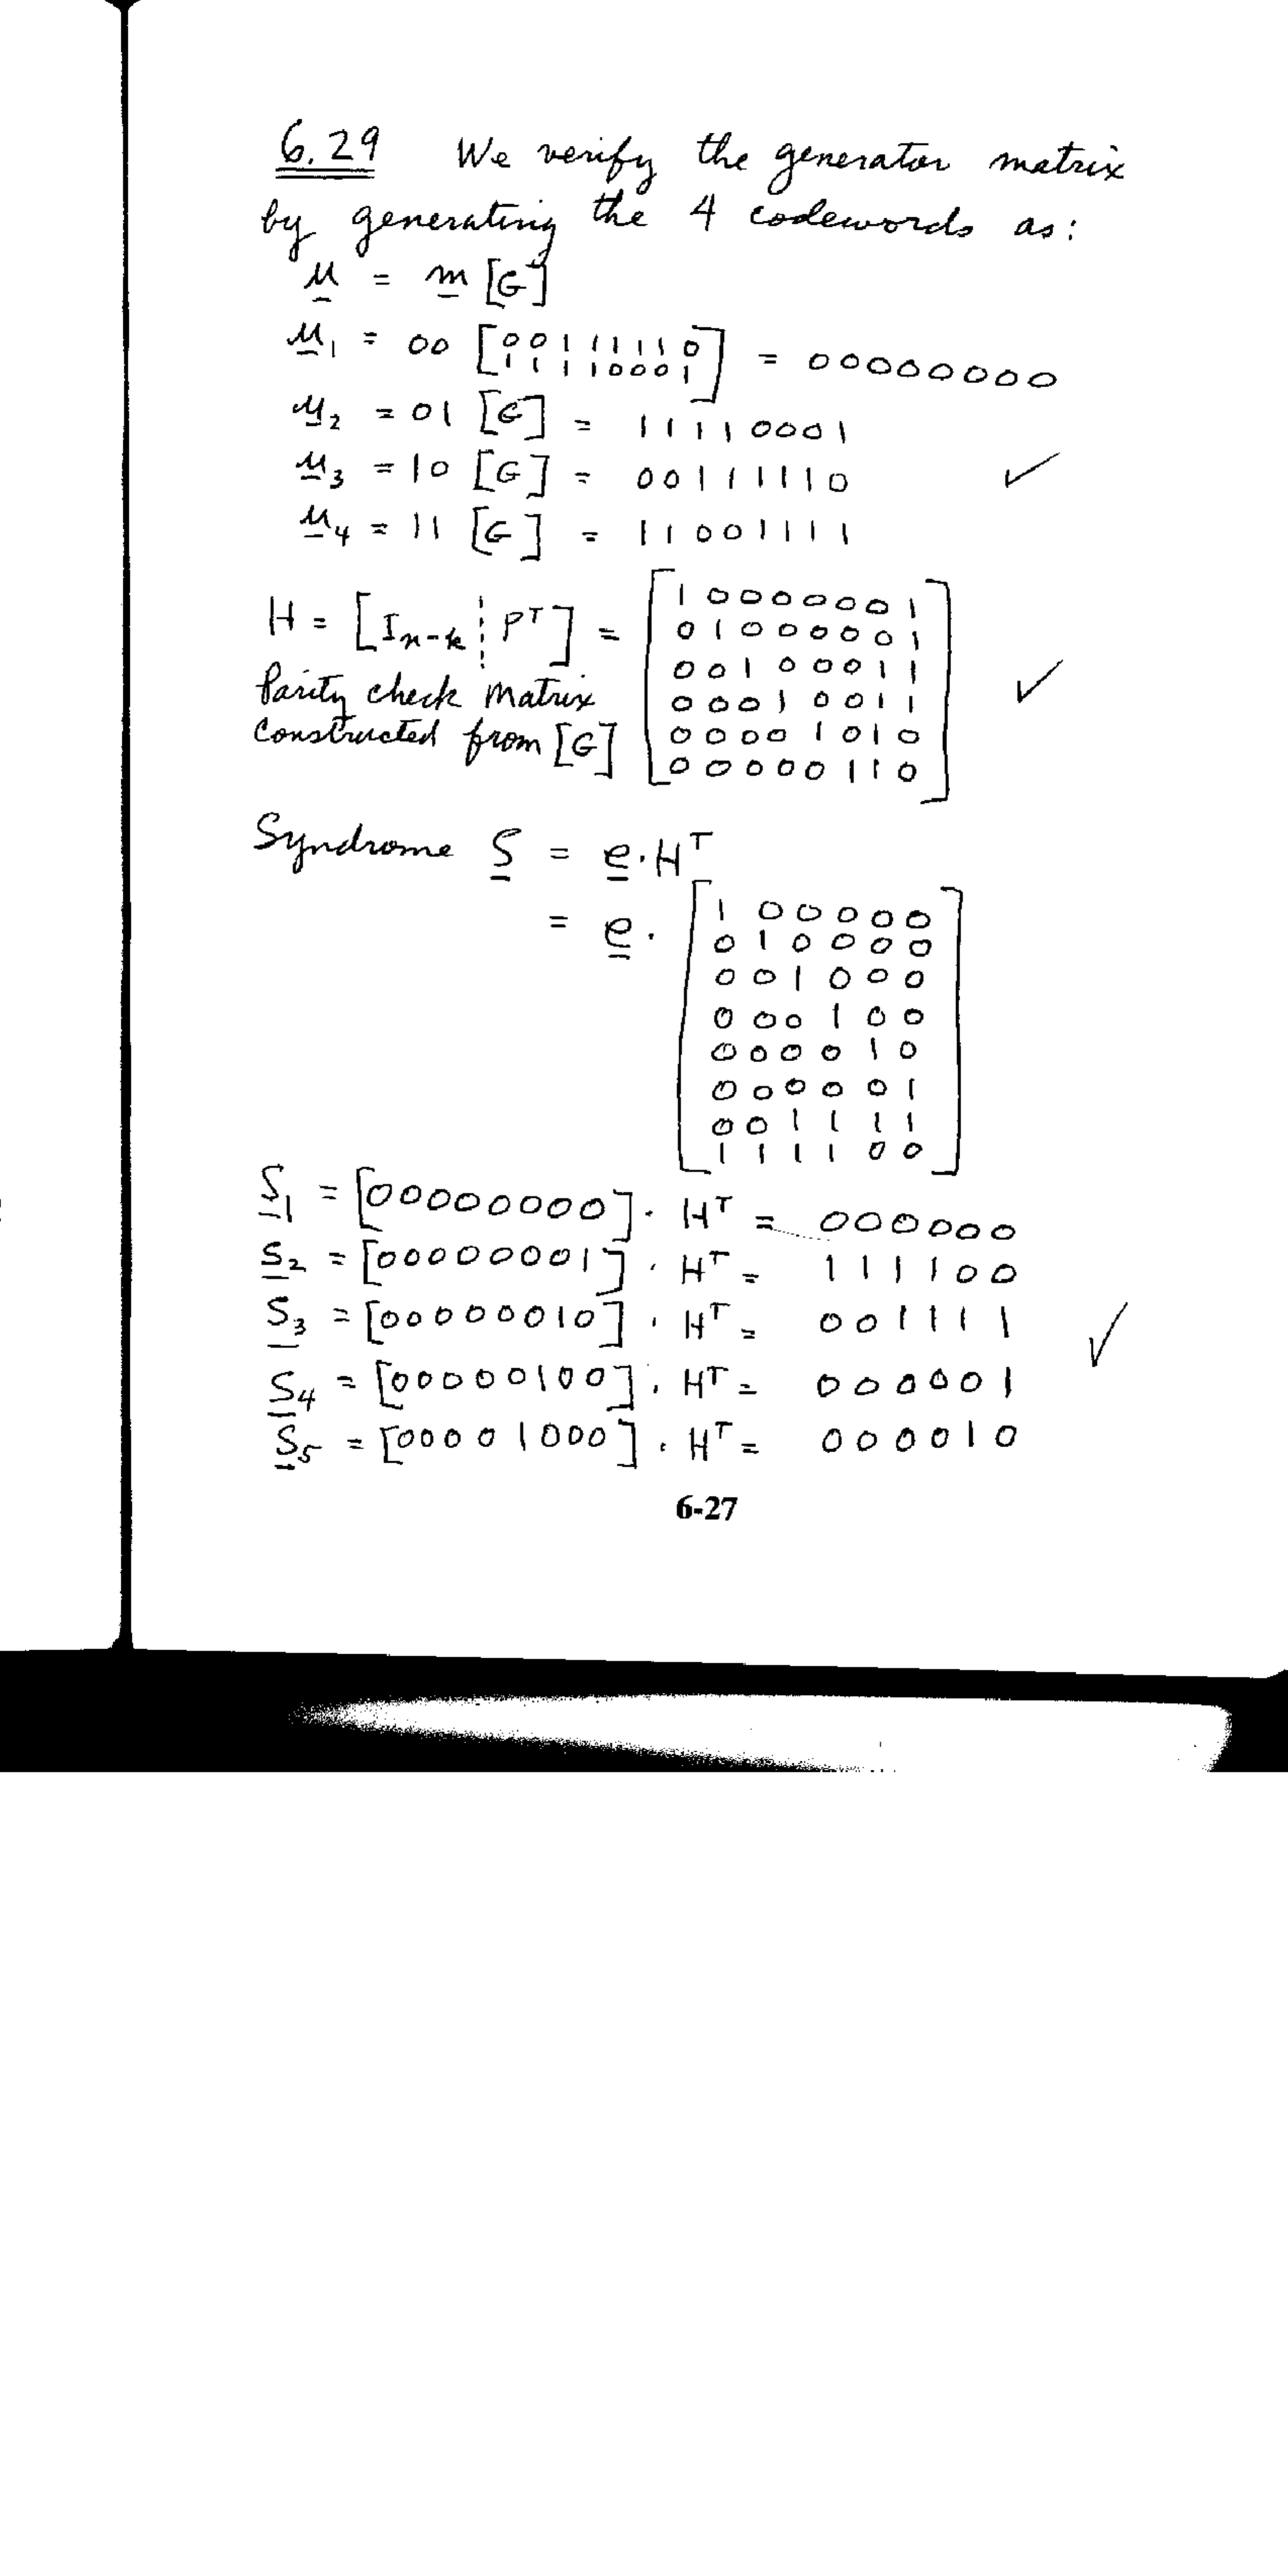 6.29 We verify the generator matrix
by generating the 4 codewords as:
u = m [G]
u1 = 00 [00111110 = 00000000
11110001]
u2 = 01 [G] = 11110001
u3 = 10 [G] = 00111110 ✓
u4 = 11 [G] = 11001111
H = [In-k ¦ P^T] = [10000001
01000001
00100011
Parity check matrix 00010011 ✓
constructed from [G] 00001010
00000110]
Syndrome S = e·H^T
= e· [100000
010000
001000
000100
000010
000001
001111
111100]
S1 = [00000000]· H^T = 000000
S2 = [00000001]· H^T = 111100
S3 = [00000010]· H^T = 001111 ✓
S4 = [00000100]· H^T = 000001
S5 = [00001000]· H^T = 000010
6-27